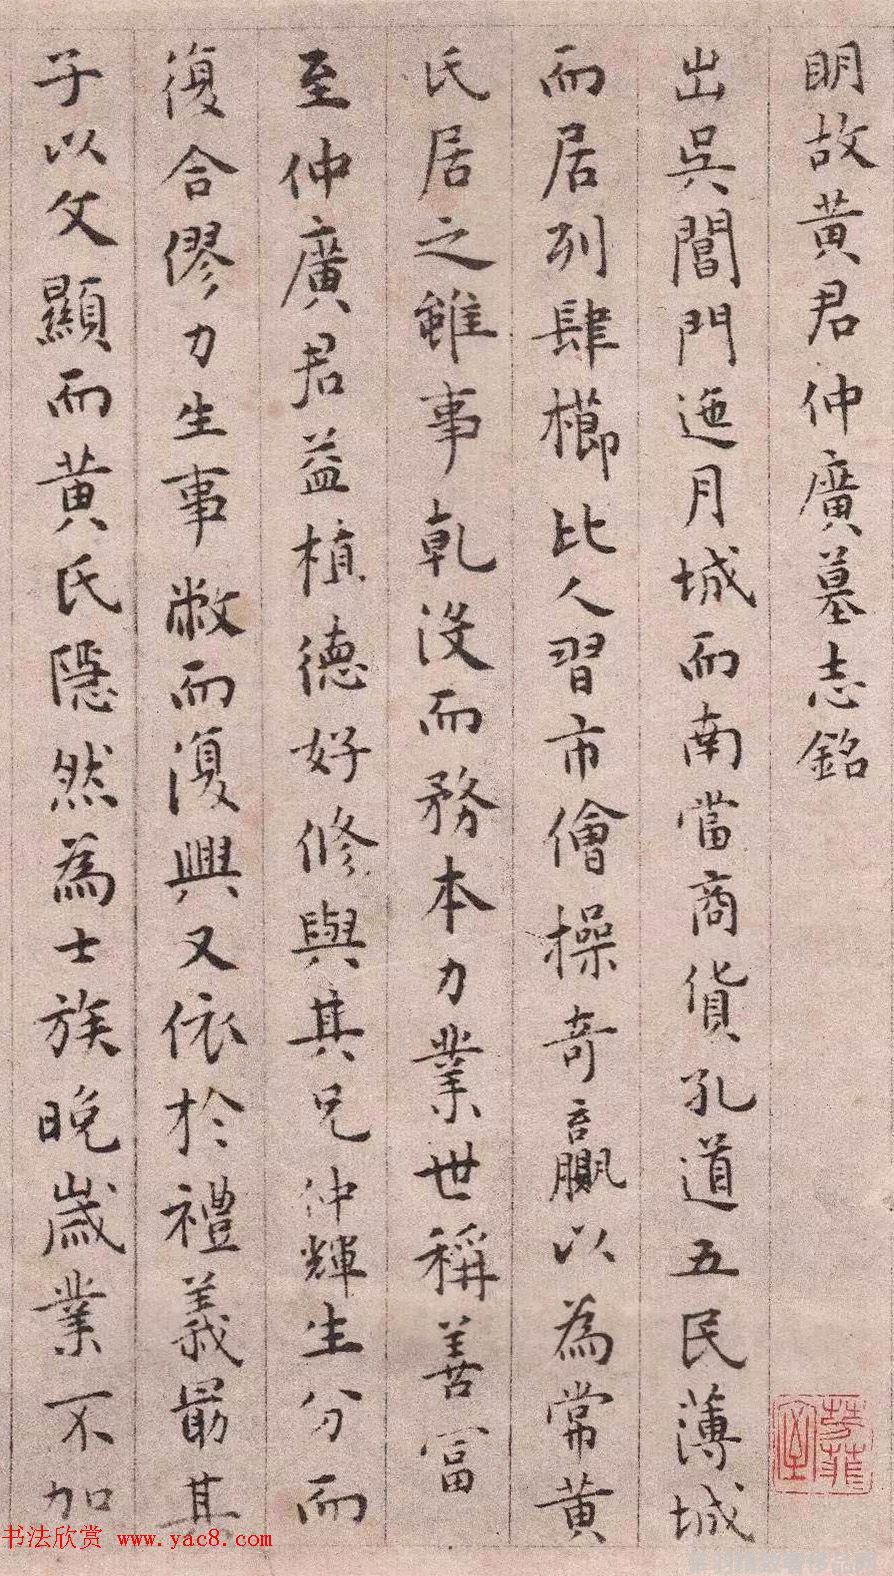 明故黄君仲廣墓志銘
出吳閶門迤月城而南當商貨孔道五民薄城
而居列肆櫛比人習市儈操奇贏以為常黄
氏居之雖事乹没而務本力業世稱善富
至仲廣君益植德好修與其兄仲輝生分而
復合僇力生事敝而復興又依於禮義最其
子以文顯而黄氏隱然為士族晚歲業不加
书法欣赏 www.yac8.com